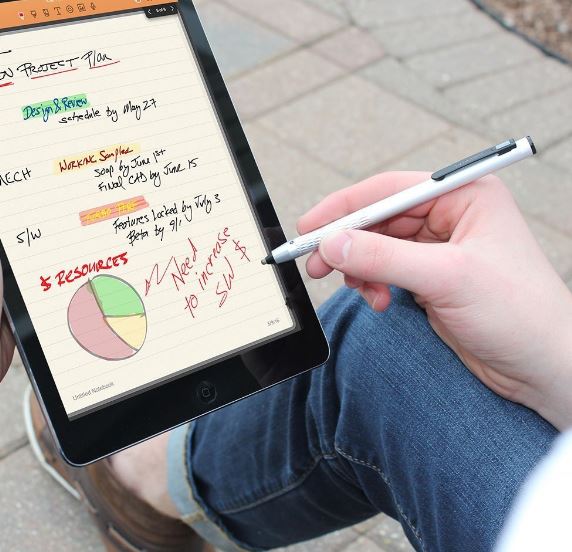 5 of 6
ON PROJECT Plan
Design & Review
schedule by May 27
MECH WORKING Samples
soap by June 1st
FINAL CAD by June 15
S/W
Features Locked by July 3
Beta by
$ RESOURCES
Need
to increase
SW $
Untitled Notebook